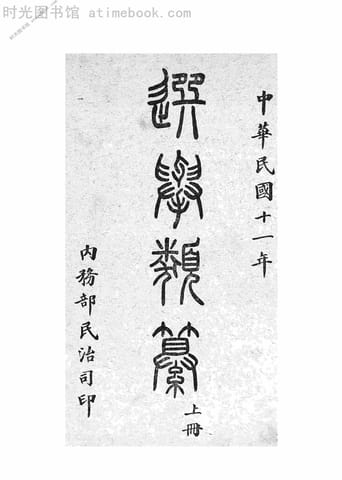 时光图书馆 www.atimebook.com
中華民國十一年
選舉類纂
上冊
內務部民治司印